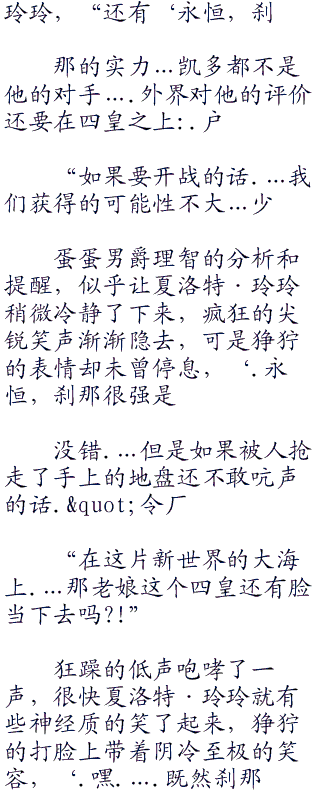 玲玲，“还有‘永恒，刹
那的实力...凯多都不是
他的对手....外界对他的评价
还要在四皇之上:.户
“如果要开战的话....我
们获得的可能性不大...少
蛋蛋男爵理智的分析和
提醒，似乎让夏洛特·玲玲
稍微冷静了下来，疯狂的尖
锐笑声渐渐隐去，可是狰狞
的表情却未曾停息，‘.永
恒，刹那很强是
没错....但是如果被人抢
走了手上的地盘还不敢吭声
的话.&quot;令厂
“在这片新世界的大海
上....那老娘这个四皇还有脸
当下去吗?!”
狂躁的低声咆哮了一
声，很快夏洛特·玲玲就有
些神经质的笑了起来，狰狞
的打脸上带着阴冷至极的笑
容，‘.嘿.....既然刹那